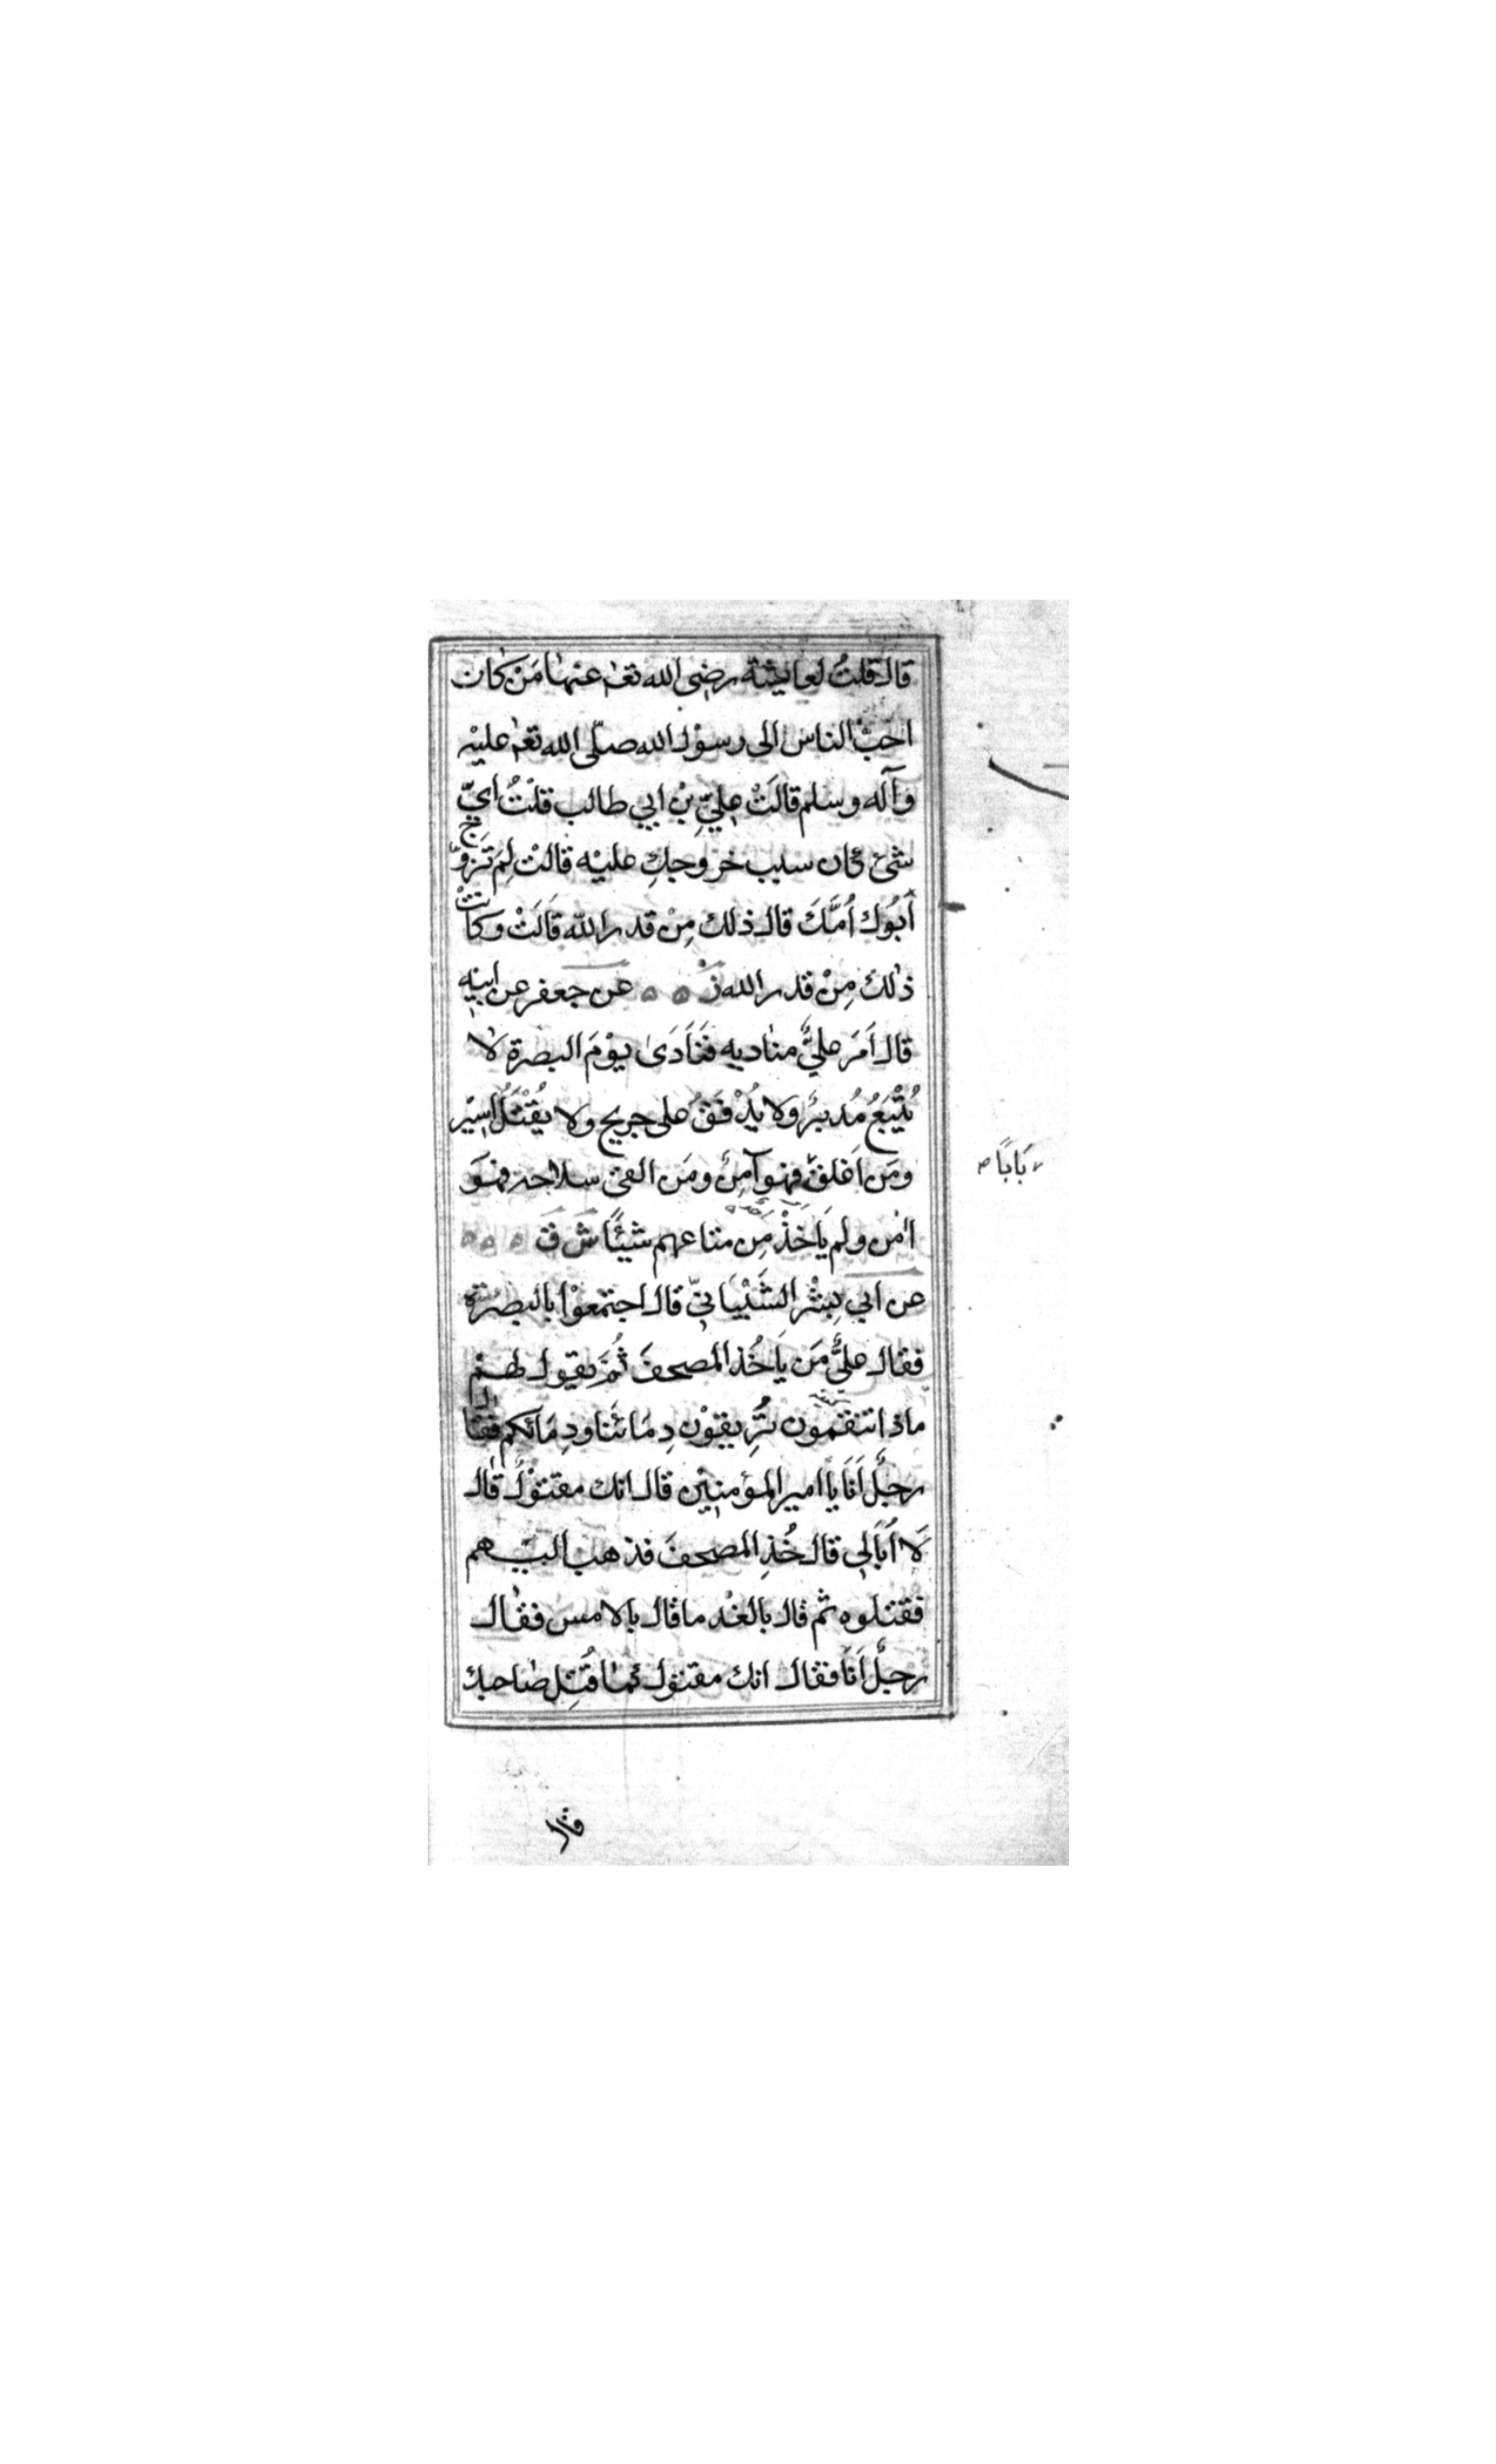 قال قلتُ لعايشة رضي الله تعا عنها مَنْ كان
احبّ الناس الى رسول الله صلّى الله تعا عليه
وآله وسلم قالَتْ عليّ بن ابي طالب قلتُ ايّ
شئ كان سبب خروجكِ عليه قالتْ لِمَ تَزوّج
اَبُوك اُمَّكَ قال ذلك مِنْ قدر الله قَالَتْ وكانتْ
ذلك مِنْ قدر الله زْ عن جعفر عن ابيه
قال اَمَرَ عليٌّ مناديه فَنَادَى يوْمَ البصرة لا
يُتْبَعُ مُدبرٌ ولا يُذفَفُ على جريح ولا يُقْتَلُ اسير
ومَن اَغلقَ فهو آمِنٌ ومَن القى سلاحه فهوَ
امن ولم يَاخذْ مِن متاعهم شيئًا شَ قَ
بَابًا
عن ابي بِشْر الشَّيْبَانيّ قال اجتمعوْا بالبصرة
فقال عليٌّ مَن يَاخُذ المصحفَ ثُمَّ يقول لهمْ
ماذا تنقمون تُرِيقوْن دِمَائَنا ودِمَائكم فقال
رجلٌ اَنَا يا امير المؤمنيْن قال انك مقتوْلٌ قال
لَا اُبَالي قال خُذِ المصحفَ فذهب اليهم
فقتلوه ثم قال بالغْد ما قال بالامس فقال
رجلٌ اَنَا فقال انك مقتول كما قُتِل صاحبك
قال